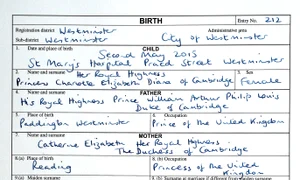 BIRTH
Entry No. 212
Registration district Westminster
Administrative area
Sub-district Westminster
City of Westminster
1. Date and place of birth
CHILD
Second May 2015
St Mary's Hospital Praed Street Westminster
2. Name and surname
Her Royal Highness
3. Sex
Princess Charlotte Elizabeth Diana of Cambridge
Female
4. Name and surname
FATHER
His Royal Highness Prince William Arthur Philip Louis
Duke of Cambridge
5. Place of birth
6. Occupation
Paddington Westminster
Prince of the United Kingdom
7. Name and surname
MOTHER
Catherine Elizabeth Her Royal Highness
The Duchess of Cambridge
8.(a) Place of birth
8.(b) Occupation
Reading
Princess of the United
Kingdom
9.(a) Maiden surname